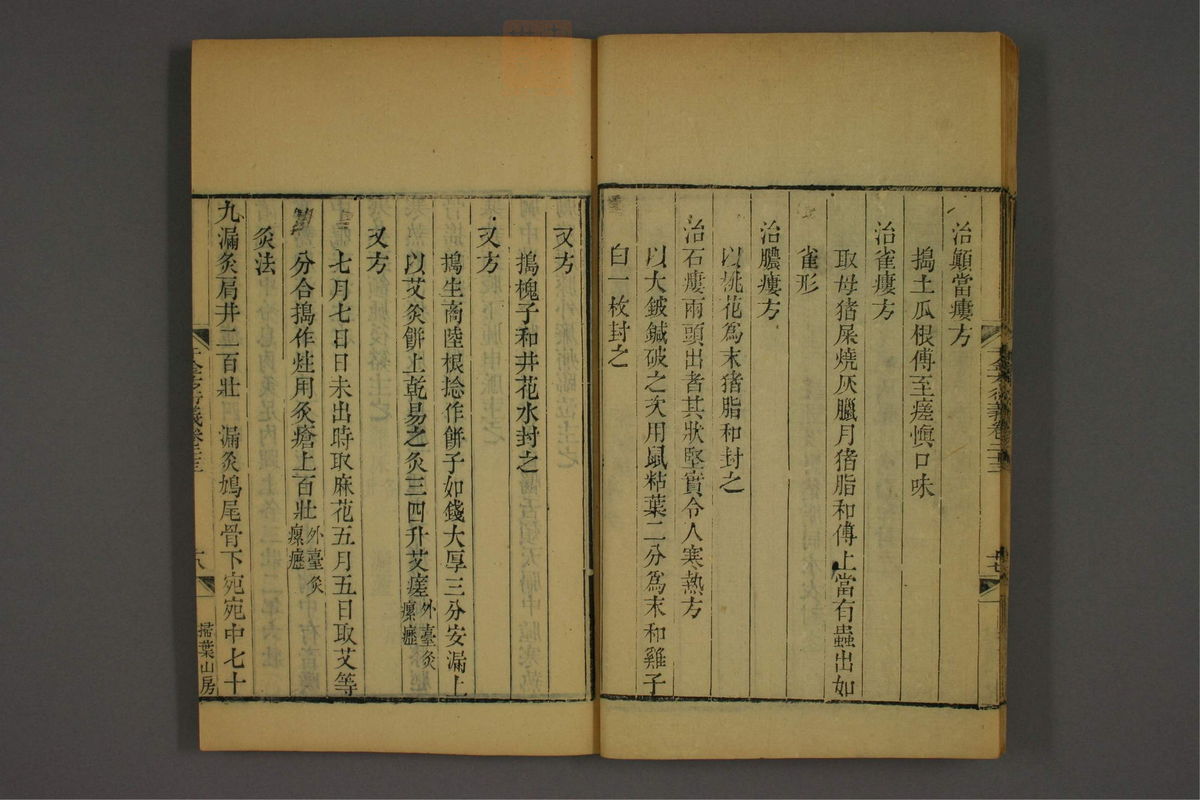 治顚當瘻方
搗土瓜根傅至瘥愼口味
治雀瘻方
取母猪屎燒灰臘月猪脂和傅上當有蟲出如
雀形
治膿瘻方
以桃花爲末猪脂和封之
治石瘻兩頭出者其狀堅實令人寒熱方
以大鈹鍼破之次用鼠粘葉二分爲末和雞子
白一枚封之
又方
搗槐子和井花水封之
又方
搗生商陸根捻作餅子如錢大厚三分安漏上
以艾灸餅上乾易之灸三四升艾瘥外臺灸
瘰癧
又方
七月七日日未出時取麻花五月五日取艾等
分合搗作炷用灸瘡上百壯外臺灸
瘰癧
灸法
九漏灸肩井二百壯 漏灸鳩尾骨下宛宛中七十
千金方衍義卷二十三
十八
掃葉山房